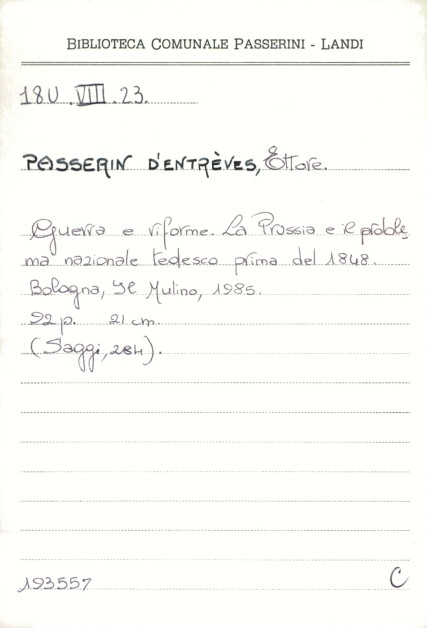 BIBLIOTECA COMUNALE PASSERINI - LANDI
18U.VIII.23.
PASSERIN D'ENTRÈVES, Ettore.
Guerra e riforme. La Prussia e il proble
ma nazionale tedesco prima del 1848.
Bologna, Il Mulino, 1985.
92 p. 21 cm.
(Saggi, 284).
193557
C